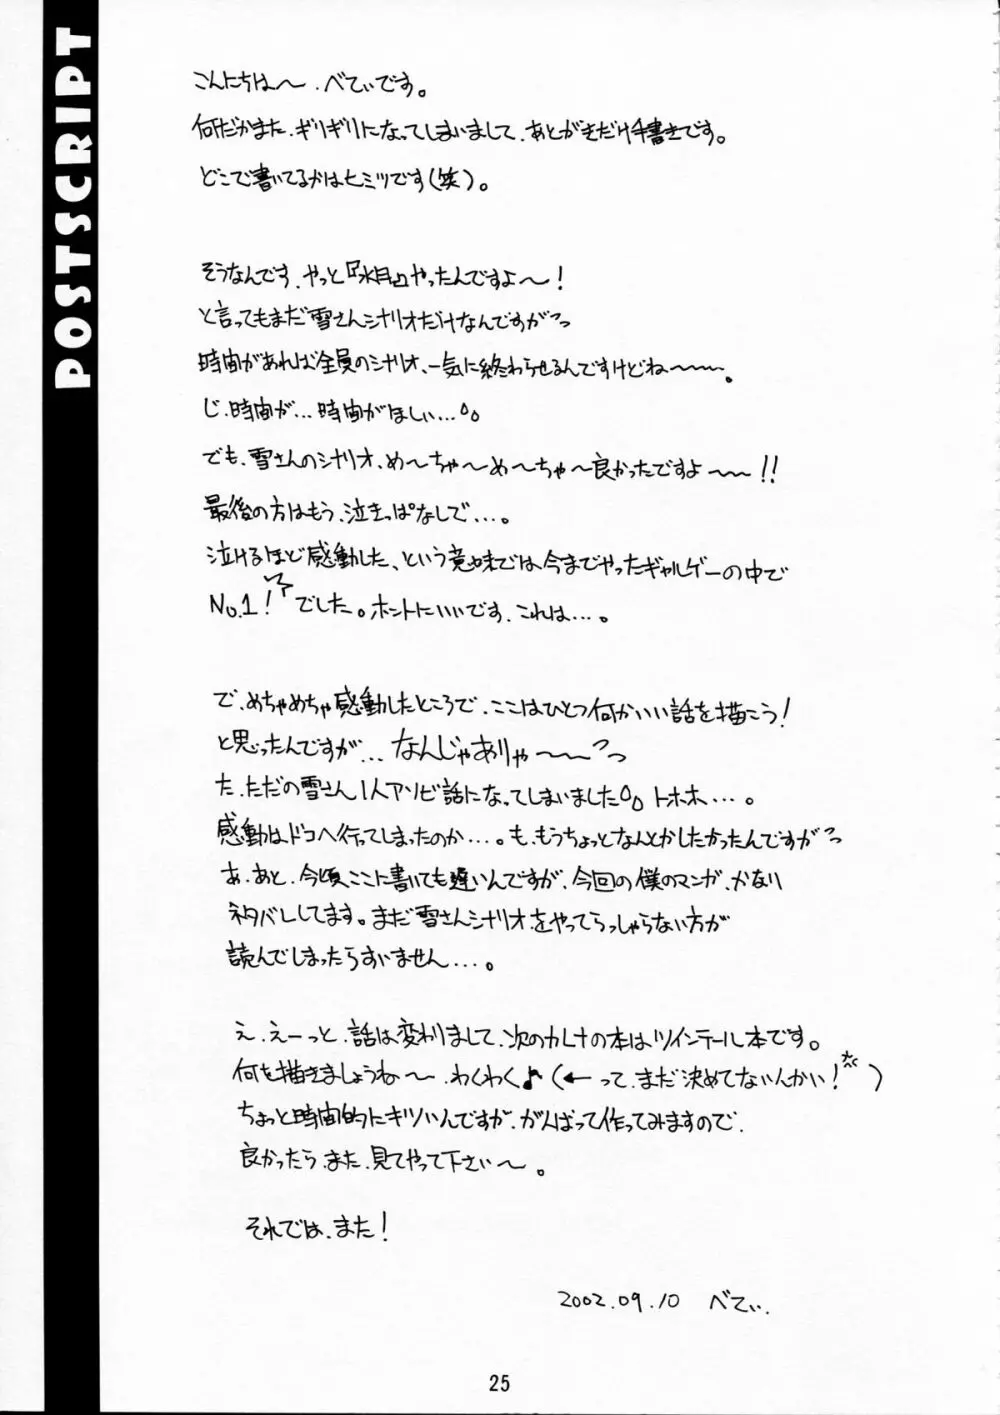 POSTSCRIPT
こんにちは〜、べてぃです。
何だかまた、ギリギリになってしまいまして、あとがきだけ手書きです。
どこで書いてるかはヒミツです(笑)。
そうなんです、やっと『水月』やったんですよ〜!
と言ってもまだ雪さんシナリオだけなんですがっ
時間があれば全員のシナリオ、一気に終わらせるんですけどね〜〜。
じ、時間が…時間がほしい…。
でも、雪さんのシナリオ、め〜ちゃ〜め〜ちゃ〜良かったですよ〜〜!!
最後の方はもう、泣きっぱなしで…。
泣けるほど感動した、という意味では今までやったギャルゲーの中で
No.1!でした。ホントにいいです、これは…。
で、めちゃめちゃ感動したところで、ここはひとつ何かいい話を描こう!
と思ったんですが…なんじゃありゃ〜〜っ
た、ただの雪さん1人アソビ話になってしまいました。トホホ…。
感動はドコへ行ってしまったのか…。も、もうちょっとなんとかしたかったんですがっ
あ、あと、今頃、ここに書いても遅いんですが、今回の僕のマンガ、かなり
ネタバレしてます。まだ雪さんシナリオをやってらっしゃらない方が
読んでしまったらすいません…。
え、えーっと、話は変わりまして、次のカレナの本はツインテール本です。
何を描きましょうね〜、わくわく♪(←って、まだ決めてないんかい!)
ちょっと時間的にキツいんですが、がんばって作ってみますので、
良かったら、また、見てやって下さい〜。
それでは、また!
2002.09.10 べてぃ.
25